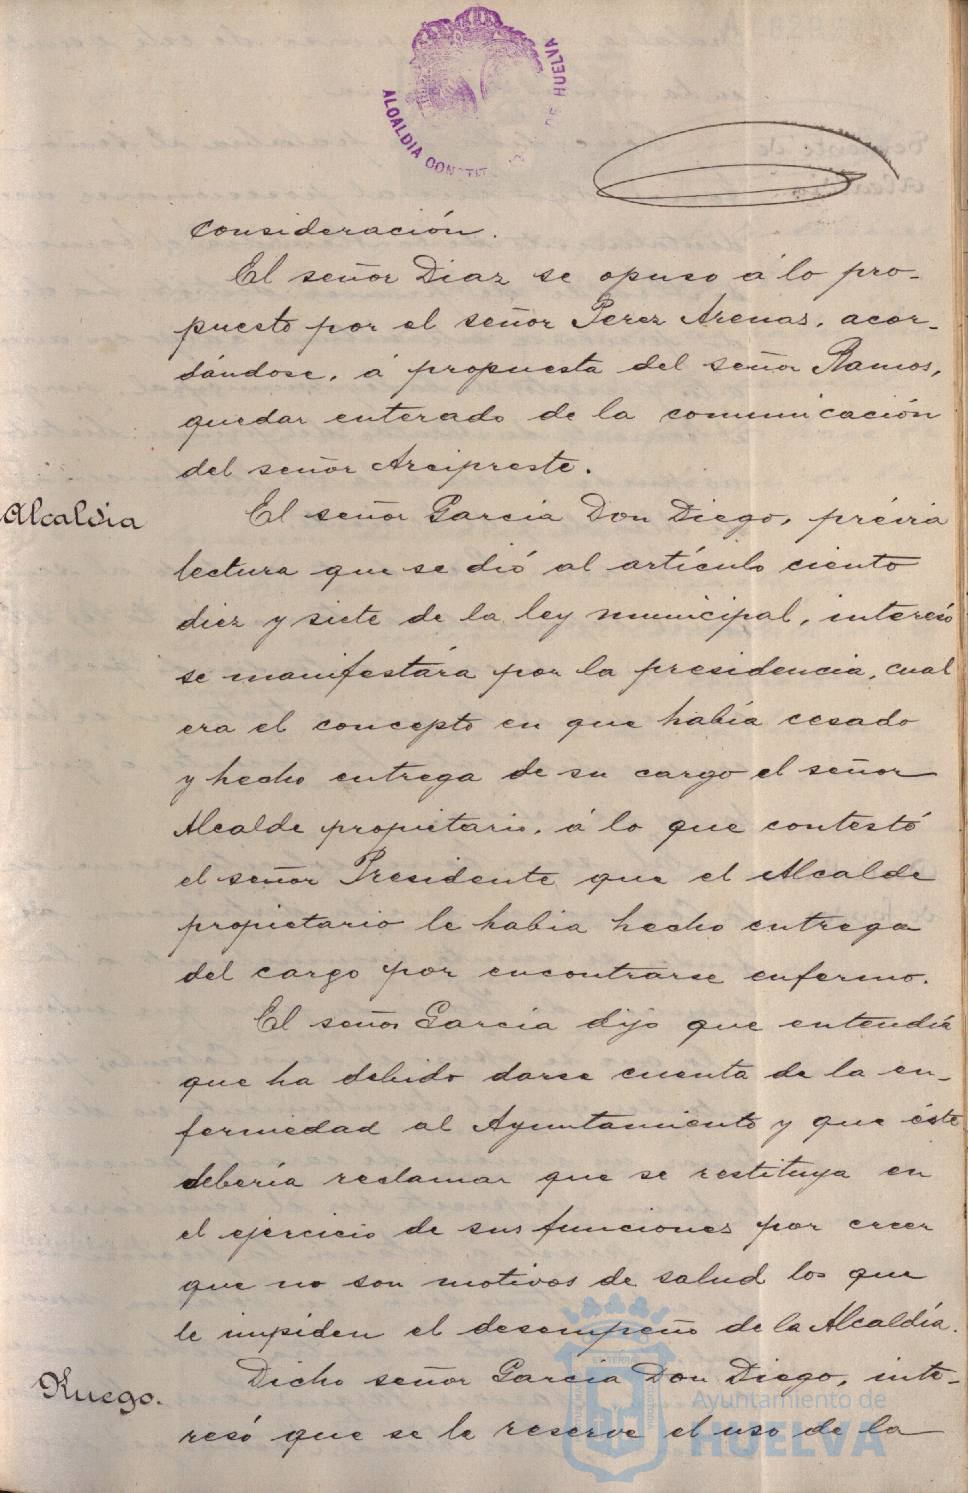 ALCALDIA CONSTIT
DE HUELVA
consideración.
El señor Diaz se opuso á lo pro-
puesto por el señor Perez Arenas, acor-
dándose, á propuesta del señor Ramos,
quedar enterado de la comunicación
del señor Arcipreste.
Alcaldia
El señor Garcia Don Diego, prévia
lectura que se dió al artículo ciento
diez y siete de la ley municipal, interesó
se manifestára por la presidencia, cual
era el concepto en que había cesado
y hecho entrega de su cargo el señor
Alcalde propietario, á lo que contestó
el señor Presidente que el Alcalde
propietario le habia hecho entrega
del cargo por encontrarse enfermo.
El señor Garcia dijo que entendía
que ha debido darse cuenta de la en-
fermedad al Ayuntamiento y que éste
debería reclamar que se restituya en
el ejercicio de sus funciones por creer
que no son motivos de salud los que
le impiden el desempeño de la Alcaldía.
Ruego.
Dicho señor Garcia Don Diego, inte-
resó que se le reserve el uso de la
Ayuntamiento de
HUELVA